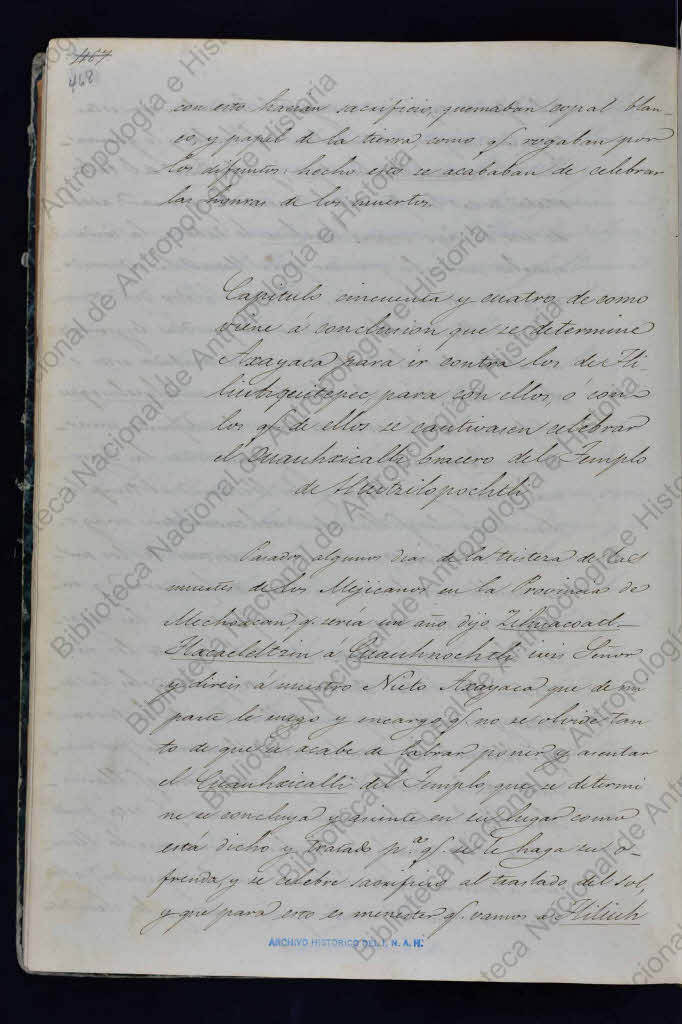 467
468
con esto hacian sacrificio, quemaban copal blan-
co, y papel de la tierra, como q.e rogaban por
los difuntos: hecho esto se acababan de celebrar
las honras de los muertos.
Capitulo cincuenta y cuatro, de como
viene á conclusion que se determine
Axayaca para ir contra los de Tli-
liuhquitepec, para con ellos, ó con
los q.e de ellos se cautivasen celebrar
el Quauhxicalli, bracero del Templo
de Huitzilopochtli
Pasados algunos dias de la tristeza de las
muertes de los Mejicanos en la Provincia de
Mechoacan q.e sería un año, dijo Zihuacoatl
Tlacaeleltzin á Cuauhnochtli: iréis Señor
y direis á nuestro Nieto Axayaca que de mi
parte le ruego y encargo, q.e no se olvide tan-
to de que se acabe de labrar poner y asentar
el Cuauhxicalli del Templo, que se determi
ne se concluya y asiente en su lugar como
está dicho y tratado p.a q.e se le haga su o-
frenda, y se celebre sacrificio al traslado del sol,
y que para esto es menester q.e vamos á Tliliuh
ARCHIVO HISTORICO DEL I. N. A. H.
Biblioteca Nacional de Antropología e Historia